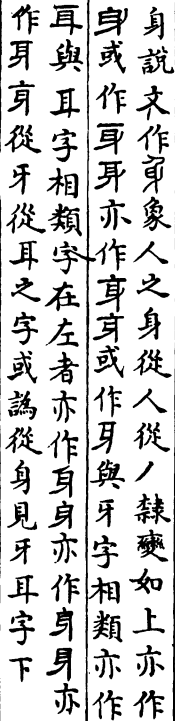 身說文作𨈐象人之身從人從丿隸變如上亦作
身或作耳身亦作身身或作耳與牙字相類亦作
耳與耳字相類字在左者亦作身身亦作身身亦
作耳身從牙從耳之字或譌從身見牙耳字下